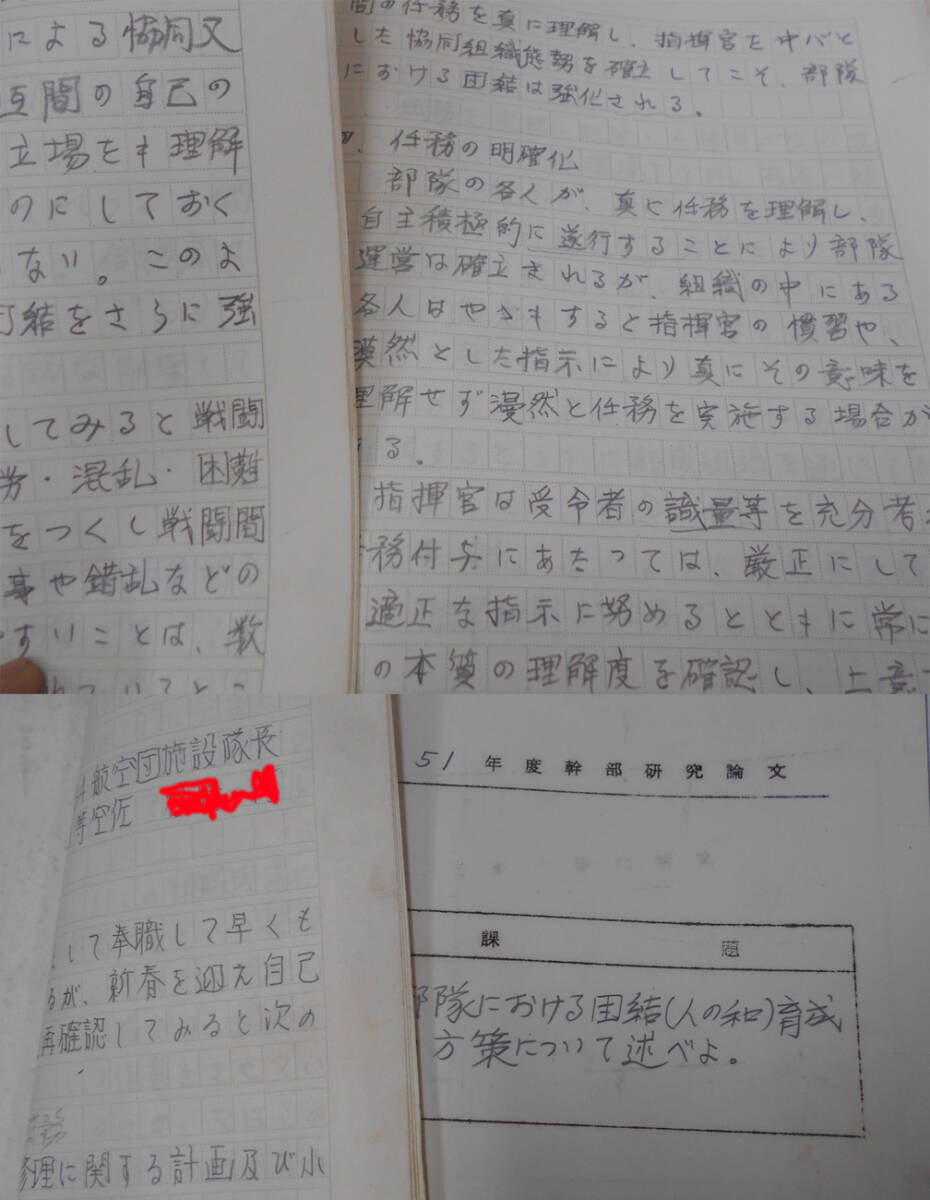 による協同又
互間の自己の
立場をも理解
のにしておく
ない。このよ
結をさらに強
してみると戦闘
労・混乱・困難
をつくし戦闘間
事や錯乱などの
すいことは、数
間の任務を真に理解し、指揮官を中心と
した協同組織態勢を確立してこそ、部隊
における団結は強化される。
任務の明確化
部隊の各人が、真に任務を理解し、
自主積極的に遂行することにより部隊
運営は確立されるが、組織の中にある
各人はやゝもすると指揮官の慣習や、
漠然とした指示により真にその意味を
理解せず漫然と任務を実施する場合が
ある。
指揮官は受令者の識量等を充分考
務付与にあたつては、厳正にして
適正な指示に努めるとともに常に
の本質の理解度を確認し、上意
航空団施設隊長
等空佐
して奉職して早くも
るが、新春を迎え自己
再確認してみると次の
修理に関する計画及び小
51年度幹部研究論文
課題
部隊における団結(人の和)育成
方策について述べよ。